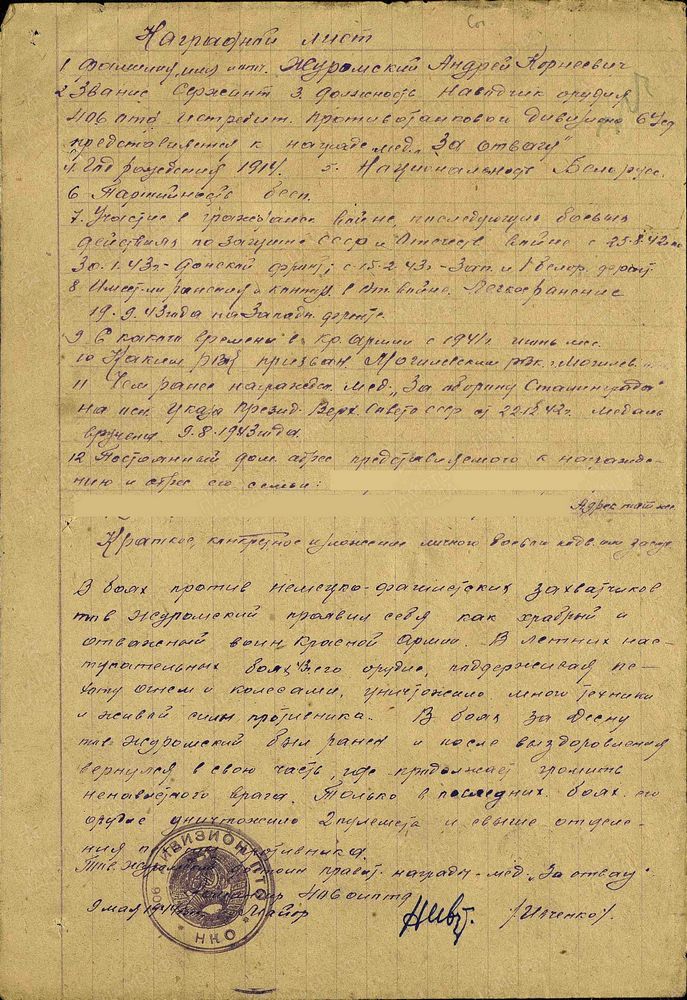 Наградной лист
1 Фамилия, имя, отч. Журомский Андрей Корнеевич
2 Звание Сержант 3. должность Наводчик орудия
406 оптд истребит. противотанковой дивизион
представляется к награде мед. "За отвагу"
4. Год рождения 1914. 5. Национальность Белорусс.
6 Партийность бесп.
7. Участие в гражданск войне, последующих боевых
действиях по защите СССР и Отечеств. войне с 25.8.42 по
30.1.43г - Донской фронт; с 15.2.43г - Зап. и 1 белор. фронт
8 Имеет ли ранения и контуз. в От. войне. Легкое ранение
19.9.43 года на Западн. фронте.
9 С какого времени в Кр. армии с 1941г. июнь мес.
10 Каким РВК призван. Могилевским рвк. г. Могилев.
11 Чем ранее награжден. мед. "За оборону Сталинграда"
на осн. Указа Презид. Верх. Совета СССР от 22.12.42г. медаль
вручена 9.8.1943 года.
12 Постоянный дом. адрес представляемого к награжде-
нию и адрес его семьи:
Адрес тот же
Краткое, конкретное изложение личного боевого подв. или заслуг
В боях против немецко-фашистских захватчиков
тов Журомский проявил себя как храбрый и
отважный воин Красной Армии. В летних нас-
тупательных боях 43г. его орудие, поддерживая пе-
хоту огнем и колесами, уничтожило много техники
и живой силы противника. В боях за Десну
тов Журомский был ранен и после выздоровления
вернулся в свою часть, где продолжает громить
ненавистного врага. Только в последних боях его
орудие уничтожило 2 пулемета и свыше отделе-
ния противника.
Тов. Журомский достоин правит. награды - мед. "За отвагу".
Командир 406 оиптд
9 мая 1944г. Майор /Ивченко/.
ДИВИЗИОН ПТО